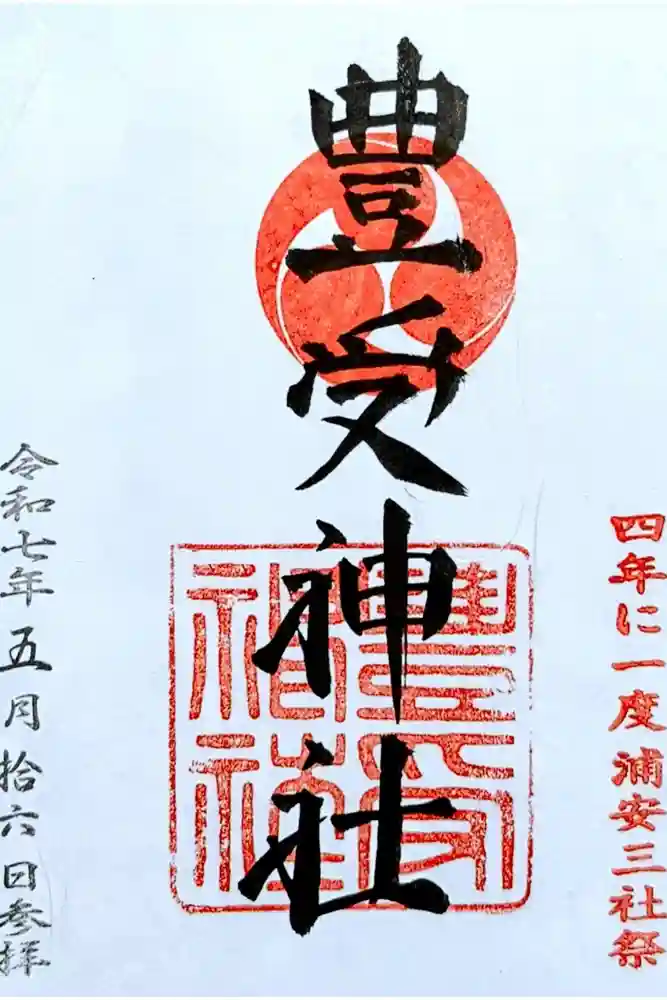 四年に一度浦安三社祭
豊受神社
令和七年五月拾六日参拝